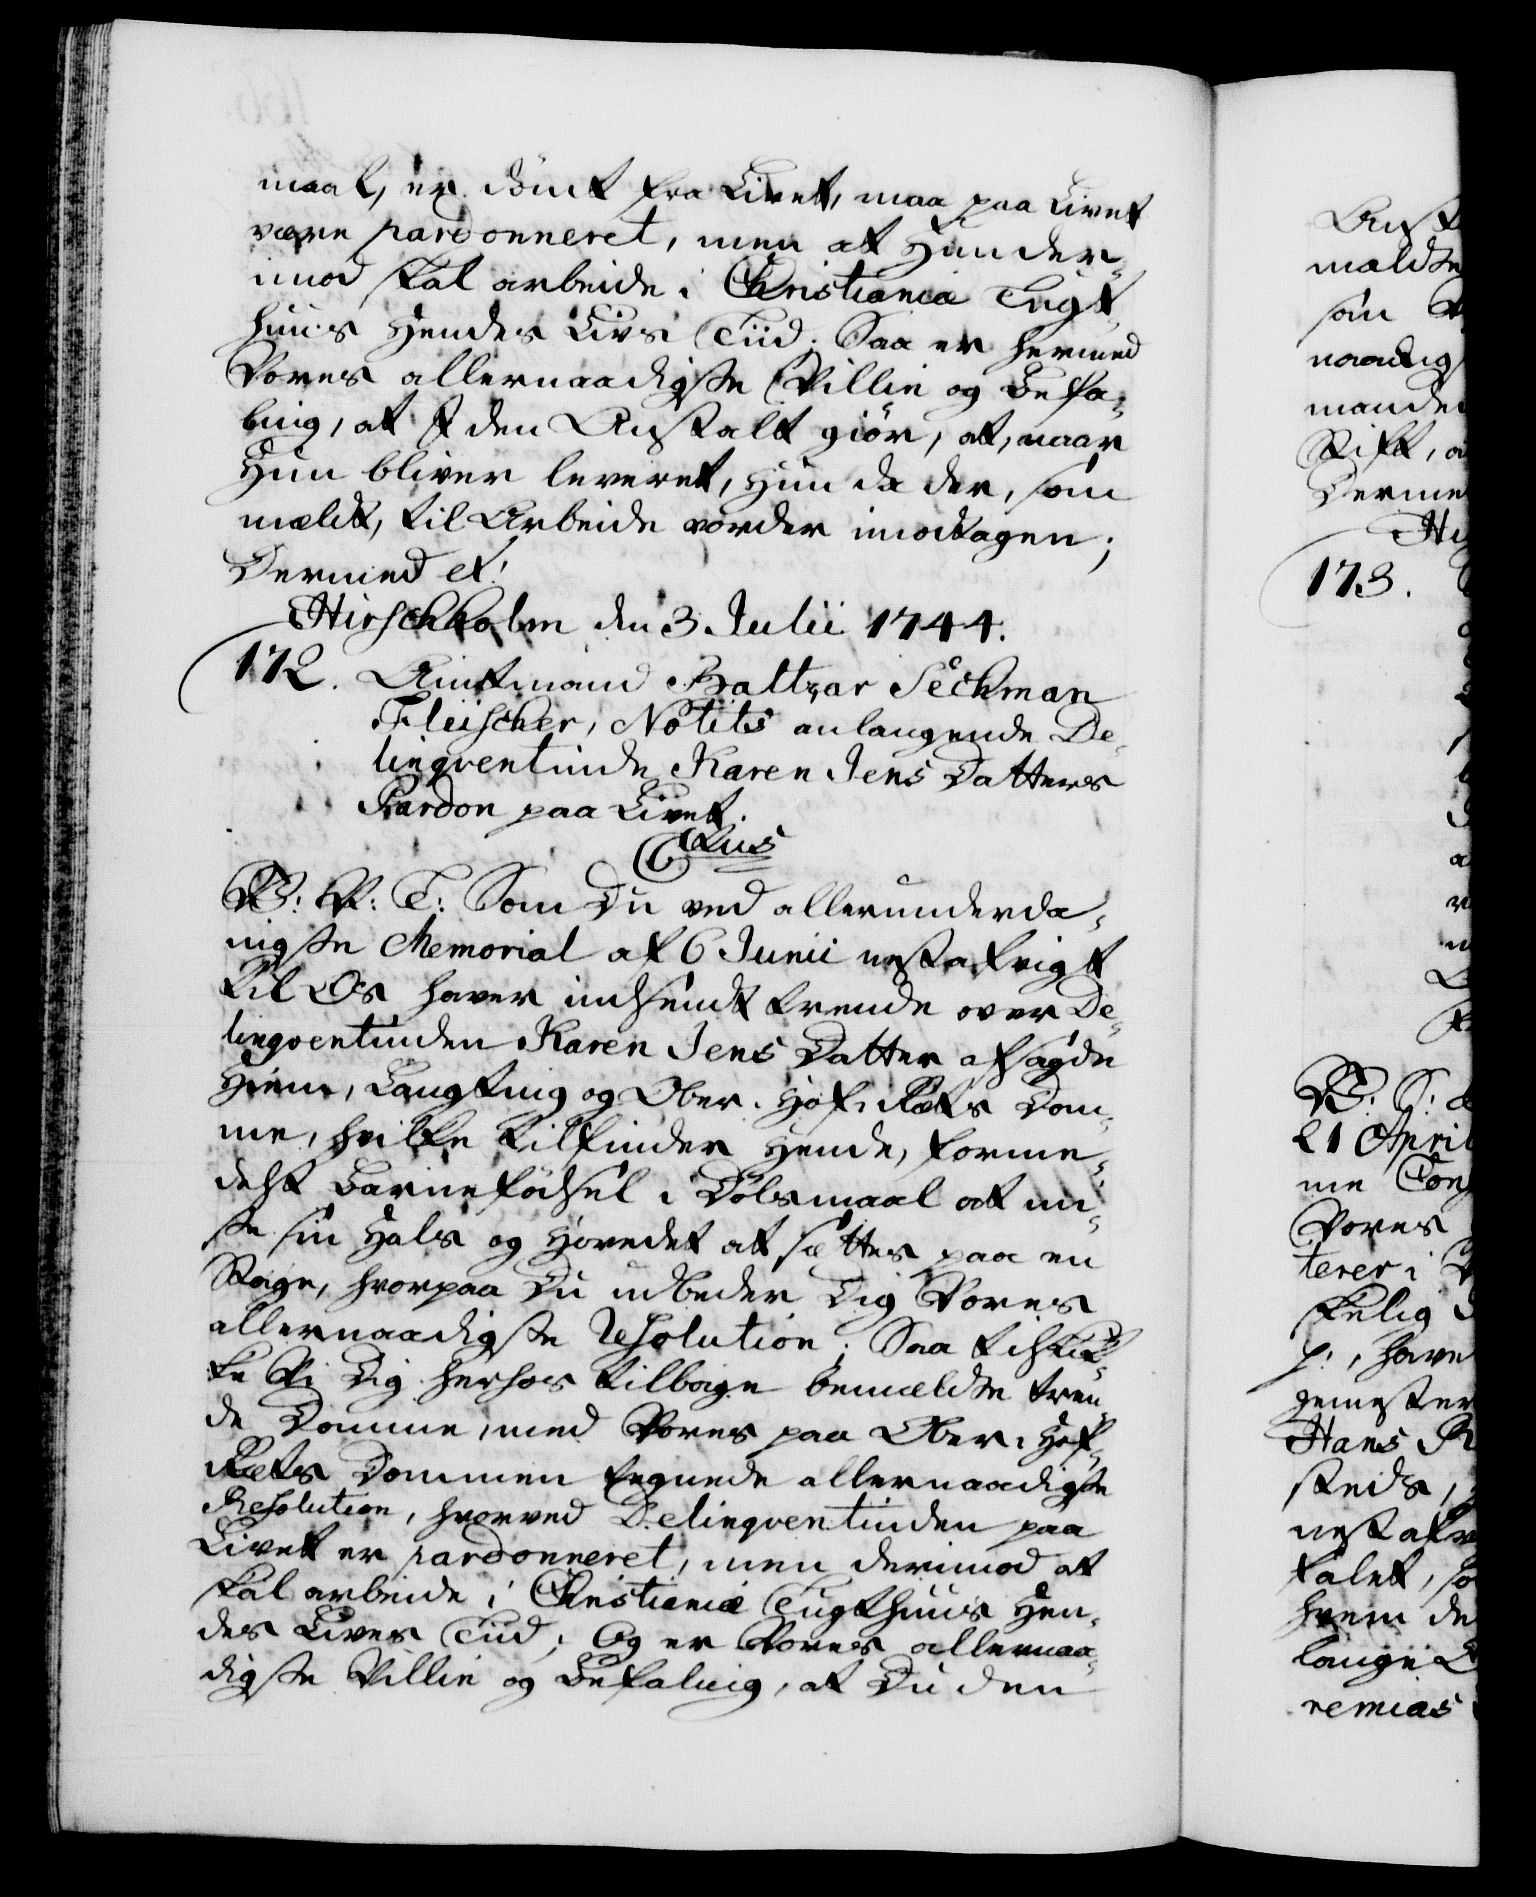 maal, er dömt fra Livet, maa paa Livet
være pardonneret, men at Hun der-
imod skal arbeide i Christiania Tugt-
huus Hendes Livs Tiid; Saa er hermed
Vores allernaadigste Villie og Befa-
ling, at I den Anstalt giör, at, naar
Hun bliver leveret, Hun da der, som
meldt, til Arbeide vorder imodtagen;
Dermed etc:
Hirschholm den 3 Julii 1744.
172. Amtmand Baltzar Sechman
Fleischer, Notits anlangende De-
linqventinde Karen Jens Datters
Pardon paa Livet.
C 6tus
V: G: T: Som Du ved allerunderda-
nigste Memorial af 6 Junii nestafvigt
til Os haver indsendt trende over De-
linqventinden Karen Jens Datter afsagde
Hiem, Laugting og Ober-Hof-Rets Dom-
me, hvilke tilfinder Hende, forme-
delst Barnefödsel i Dölsmaal at mi-
ste sin Hals og Hovedet at settes paa en
Stage, hvorpaa Du udbeder Dig Vores
allernaadigste Resolution; Saa tilskik-
ke Vi Dig herhos tilbage bemeldte tren-
de Domme, med Vores paa Ober-Hof-
Rets Dommen tegnede allernaadigste
Resolution, hvorved Delinqventinden paa
Livet er pardonneret, men derimod at
skal arbeide i Christiania Tugthuus Hen-
des Lives Tiid; Og er Vores allernaa-
digste Villie og Befaling, at Du den
mældte
som
naadig
mander
Stift,
Derme
173.
21 April
me
Vores
terer i
skelig
p:, have
gemester
Hans
steds,
nestafv
falet, so
hvem de
lange
remias